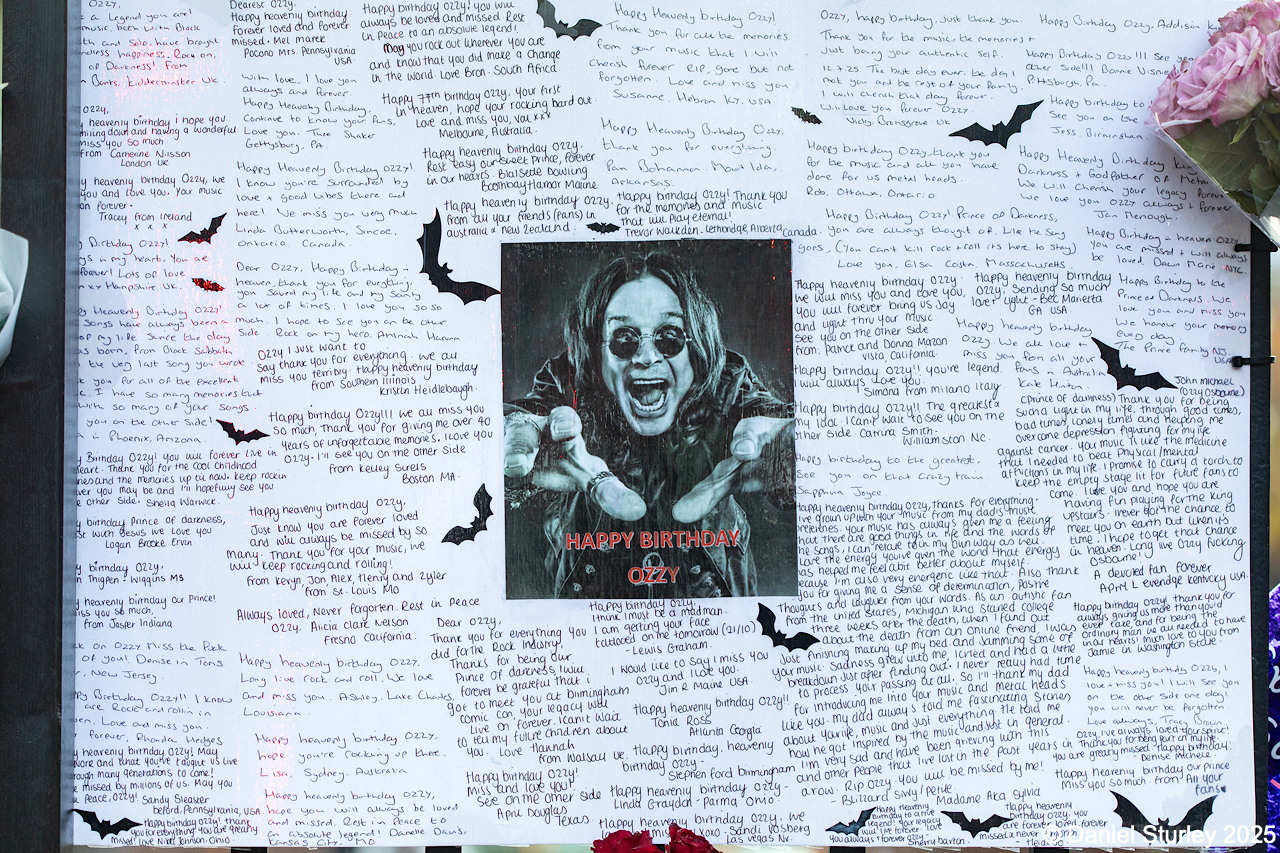 OZZY,
a Legend you are!
music, both with Black
and Solo, have brought
endless happiness. Rock on,
of Darkness! From
Kidderminster UK
OZZY,
heavenly birthday i hope you
and having a wonderful
miss you so much
From Carherine Nilsson
London UK
heavenly birthday Ozzy, we
you and love you. Your music
on forever.
Tracey from Ireland
x x x
Birthday Ozzy!
in my heart. You are
forever! Lots of love
Hampshire UK.
Heavenly Birthday Ozzy!
Songs have always been a
of my life since the day
was born, from Black Sabbath
the very last song you wrote
you, for all of the excellent
I have so many memories that
with so many of your songs.
you on the other side!
in Phoenix, Arizona.
Birthday Ozzy! you will forever live in
heart. Thank you for the cool childhood
and the memories up til now. keep rockin
ever you may be and i'll hopefully see you
other side. Sheila Warwick.
birthday Prince of darkness,
with Jesus we love you
Logan Brooke Ervin
birthday Ozzy.
Thigpen. Wiggins MS
heavenly birthday our Prince!
miss you so much,
from Jasper Indiana
on Ozzy. Miss the Rock
of you!. Denise in Toms
New Jersey.
Birthday Ozzy!! I know
are Rock and rollin in
Love and miss you.
forever, Rhonda Hedges
heavenly birthday Ozzy! May
and that you've taught us live
through many generations to come!
missed by millions of us. May you
in Peace, Ozzy! Sandy Sleaser
Bedford, Pennsylvania, USA
Happy birthday Ozzy! thank
you for everything. you are greatly
missed! love Nikki Johnson. Ohio
Dearest Ozzy.
Happy heavenly birthday.
Forever loved and Forever
missed. Mel Marek
Pocono Mts. Pennsylvania
USA
With love, I love you
always and forever.
Happy Heavenly Birthday.
Continue to know your fans,
Love you. Thee Shaker
Gettysburg. PA
Happy Heavenly Birthday Ozzy!
I know you're surrounded by
love + good vibes there and
here! We miss you very much
Linda Butterworth, Simcoe,
Ontario. Canada.
Dear Ozzy, Happy Birthday in
heaven, thank you for everything.
you Saved my life and my sanity
a lot of times. I love you so so
much. I hope to see you on the other
Side. Rock on my hero. Aminah Hanna
Ozzy I just want to
say thank you for everything. we all
miss you terribly. Happy heavenly birthday
from southern illinois
kristin Heidlebaugh.
Happy birthday Ozzy!!! we all miss you
so much, Thank you for giving me over 40
years of unforgettable memories. I love you
Ozzy. I'll see you on the other side
from Kelley Surels
Boston MA.
Happy heavenly birthday Ozzy.
Just know you are forever loved
and will always be missed by so
many. Thank you for your music, we
will keep rocking and rolling!
from keryn, Jon, Alex, Henry and Zyler
from St. Louis MO
Always loved, Never forgotten. Rest in Peace
Ozzy. Alicia Clare Nelson
Fresno California.
Happy heavenly birthday Ozzy.
Long live rock and roll. We love
and miss you. Ashley, Lake Charles,
Louisiana.
Happy heavenly birthday Ozzy,
hope you're rockin up there.
Lisa, Sydney. Australia
Happy heavenly birthday Ozzy,
hope you will always be loved
and missed. Rest in Peace to
an absolute legend! Danelle Davis,
Kansas City, MO
Happy heavenly birthday Ozzy! you will
always be loved and missed. Rest
in Peace to an absolute legend!
may you rock out wherever you are
and know that you did make a change
in the world. Love Bron. South Africa
Happy 77th birthday Ozzy. your first
in Heaven, hope your rocking bard out.
Love and miss you, Val xxx
Melbourne, Australia.
Happy Heavenly Birthday Ozzy.
Rest easy our sweet prince, forever
in our hearts. Blaisede Dowling
Boothbay Harbor Maine
Happy heavenly birthday Ozzy.
from all your friends (fans) in
australia + new zealand.
Happy Heavenly Birthday Ozzy!
Thank you for all the memories
from your music that I will
cherish forever. Rip, gone but not
forgotten. Love and miss you
Susanne. Hebron Ky. USA
Happy Heavenly Birthday Ozzy,
thank you for everything.
Pam Bohannon Mount Ida,
Arkansas.
Happy birthday Ozzy! Thank you
for the memories and music
that will play eternal!
Trevor Waukden. Lethbridge, Alberta, Canada.
HAPPY BIRTHDAY
OZZY
Dear Ozzy,
Thank you for everything you
did for the Rock Industry!
Thanks for being our
Prince of darkness, i will
forever be grateful that i
got to meet you at birmingham
comic con, your legacy will
Live on forever. i can't wait
to tell my future children about
you. Love Hannah
from Walsall UK.
Happy Birthday Ozzy!
Miss and love you!
See you on the other side
April Douglas
Texas
Happy birthday Ozzy.
I think I must be a madman.
I am getting your face
tattooed on me tomorrow (21/10)
- Lewis Graham.
I would like to say I miss you
Ozzy and I love you.
Jim R Maine USA
Happy heavenly birthday Ozzy!!
Tonia Ross
Atlanta Georgia
Happy birthday. heavenly
birthday Ozzy.
Stephen Ford birmingham
Happy heavenly birthday Ozzy.
Linda Graydon - Parma, Ohio
xoxo - Sandi Vosberg
Las vegas Nv.
Ozzy, happy birthday, just thank you.
Thank you for the music, the memories +
just being your authentic self.
12.7.25 The best day ever. be day I
met you and the rest of your family.
I will cherish that day forever.
Will Love you forever Ozzy
Vicky. Bromsgrove UK
Happy Birthday Ozzy, thank you
for the music and all you have
done for us metal heads.
Rob, Ottawa, Ontario
Happy Birthday Ozzy! Prince of Darkness,
you are always thought of. Like he say
goes, (You can't kill rock + roll its here to stay)
Love you, Elsa Costa, Massachusetts
Happy Heavenly Birthday Ozzy. Addison
Happy Birthday Ozzy!!! See you
other side!!! Bonnie
Pittsburg, Pa.
Happy birthday to
See you on the
Jess, Birmingham
Happy Heavenly Birthday
Darkness + Godfather of Metal
We will cherish your legacy forever
we love you Ozzy always + forever
Jan Menough.
Happy birthday in heaven Ozzy
you are missed + will always
be loved. Dawn Marie, NYC.
Happy Heavenly birthday Ozzy.
we will miss you and love you,
you will forever bring us joy
and light thru your music
see you on the other side
from. Prince and Donna Mazon
Vista, California
Happy heavenly birthday
Ozzy, Sending so much
love + light - Bec Marietta
GA USA
Happy heavenly birthday
Ozzy. We all love +
miss you from all your
Fans in Australia
Kate Hinton.
Happy Birthday to the
Prince of Darkness. We
love you and miss you
We honour your memory
every day.
The Prince family NJ.
USA
Happy Birthday!! you're legend.
I will always love you.
Simona from milano Italy
Happy birthday Ozzy!! The greatest
my Idol. I can't wait to see you on the
other side. Catrina Smith.
Williamston NC.
Happy birthday to the greatest.
See you on that crazy train.
Sapphina Joyce
John Michael
(Ozzy Osbourne)
(Prince of darkness) Thank you for being
such a light in my life, through good times,
bad times, lonely times and helping me
overcome depression fighting for my life
against cancer. your music is like the medicine
that I needed to beat Physical/mental
afflictions in my life. I promise to carry a torch to
keep the empty stage lit for future fans to
come. I love you and hope you are
having fun playing for the king
upstairs. I never got the chance to
meet you on earth but when its
time. I hope to get that chance
in heaven. Long live Ozzy fucking
Osbourne!
A devoted fan forever
April L evendge kentucky USA.
Happy birthday Ozzy, thanks for everything.
I've grown up with your music from my dad's music
preferences. your music has always given me a feeling
that there are good things in life and the words of
the songs, i can relate to in my own way as well.
Love the energy you've given the world that energy
has helped me feel a bit better about myself.
because I'm also very energetic like that. Also thank
you for giving me a sense of determination, positive
thoughts and laughter from your words. As an autistic fan
from the united states, Michigan who started college
three weeks after the death, when I found out
about the death from an online friend, I was
just finishing making up my bed and Jamming some of
your music. Sadness grew with me, i cried and had a little
breakdown just after finding out. I never really had time
to process your passing at all. So i'll thank my dad
for introducing me into your music and metal heads
like you. My dad always told me fascinating stories
about your life, music and just everything. He told me
how he got inspired by the music and just in general.
I'm very sad and have been grieving with this
and other people that live lost in the past years in
a row. RIP Ozzy. you will be missed by me!
- Blizzard Sivly/Petre.
Madame Aka Sylvia
Happy birthday Ozzy! thank you for
always giving us more than you'd
ever take, and for being the
ordinary man we all needed to have
in our hearts! much love to you from
Jamie in Washington State.
Happy Heavenly Birthday, I
love + miss you! I will see you
on the other side one day!
you will never be forgotten.
Love always, Tracy Brown
Ozzy, I've always loved your spirit!
Thank you for being part of my life.
you are greatly missed. Happy birthday!
- Denise Michele
Happy heavenly birthday our Prince
Miss you so much. From All your
fans
Happy heavenly
birthday to a
legend! your legacy
will live forever. love
you always + forever
Sherry barton.
Happy heavenly
birthday Ozzy.
you are forever loved +
missed
- Heidi
© Daniel Sturley 2025